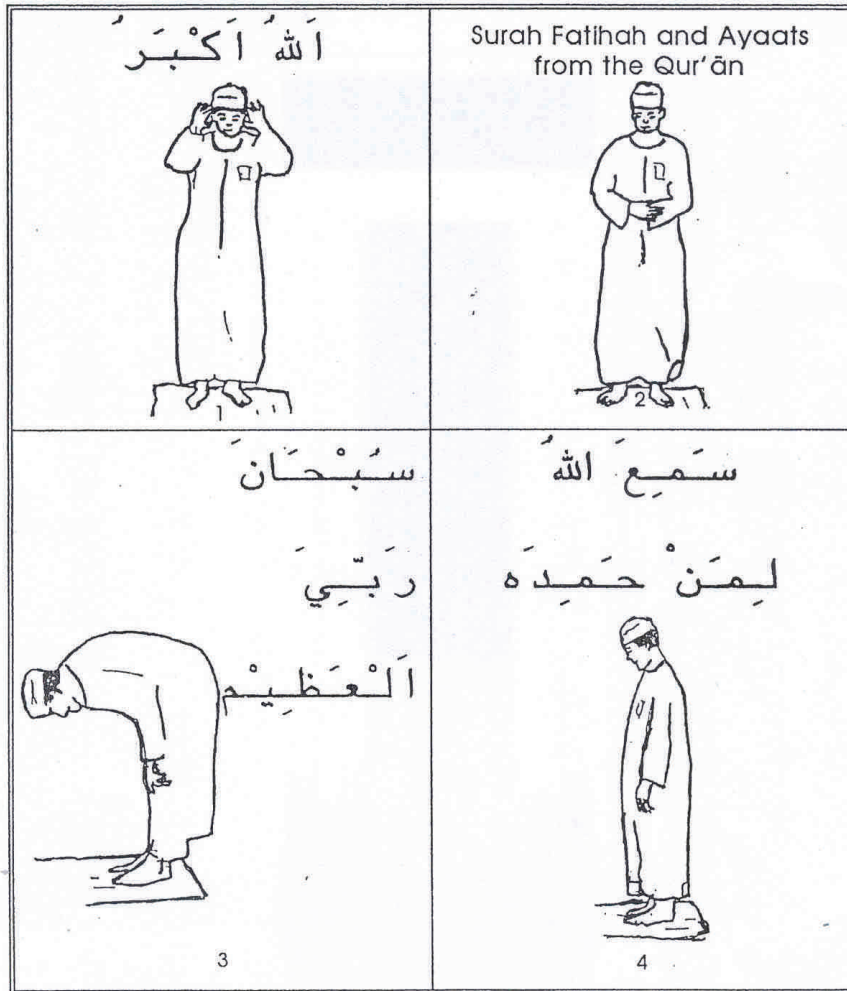 اَللهُ اَكْبَرُ
1
Surah Fatihah and Ayaats
from the Qur'ān
2
سُبْحَانَ
رَبِّيَ
اَلْعَظِيْم
3
سَمِعَ اللهُ
لِمَنْ حَمِدَه
4